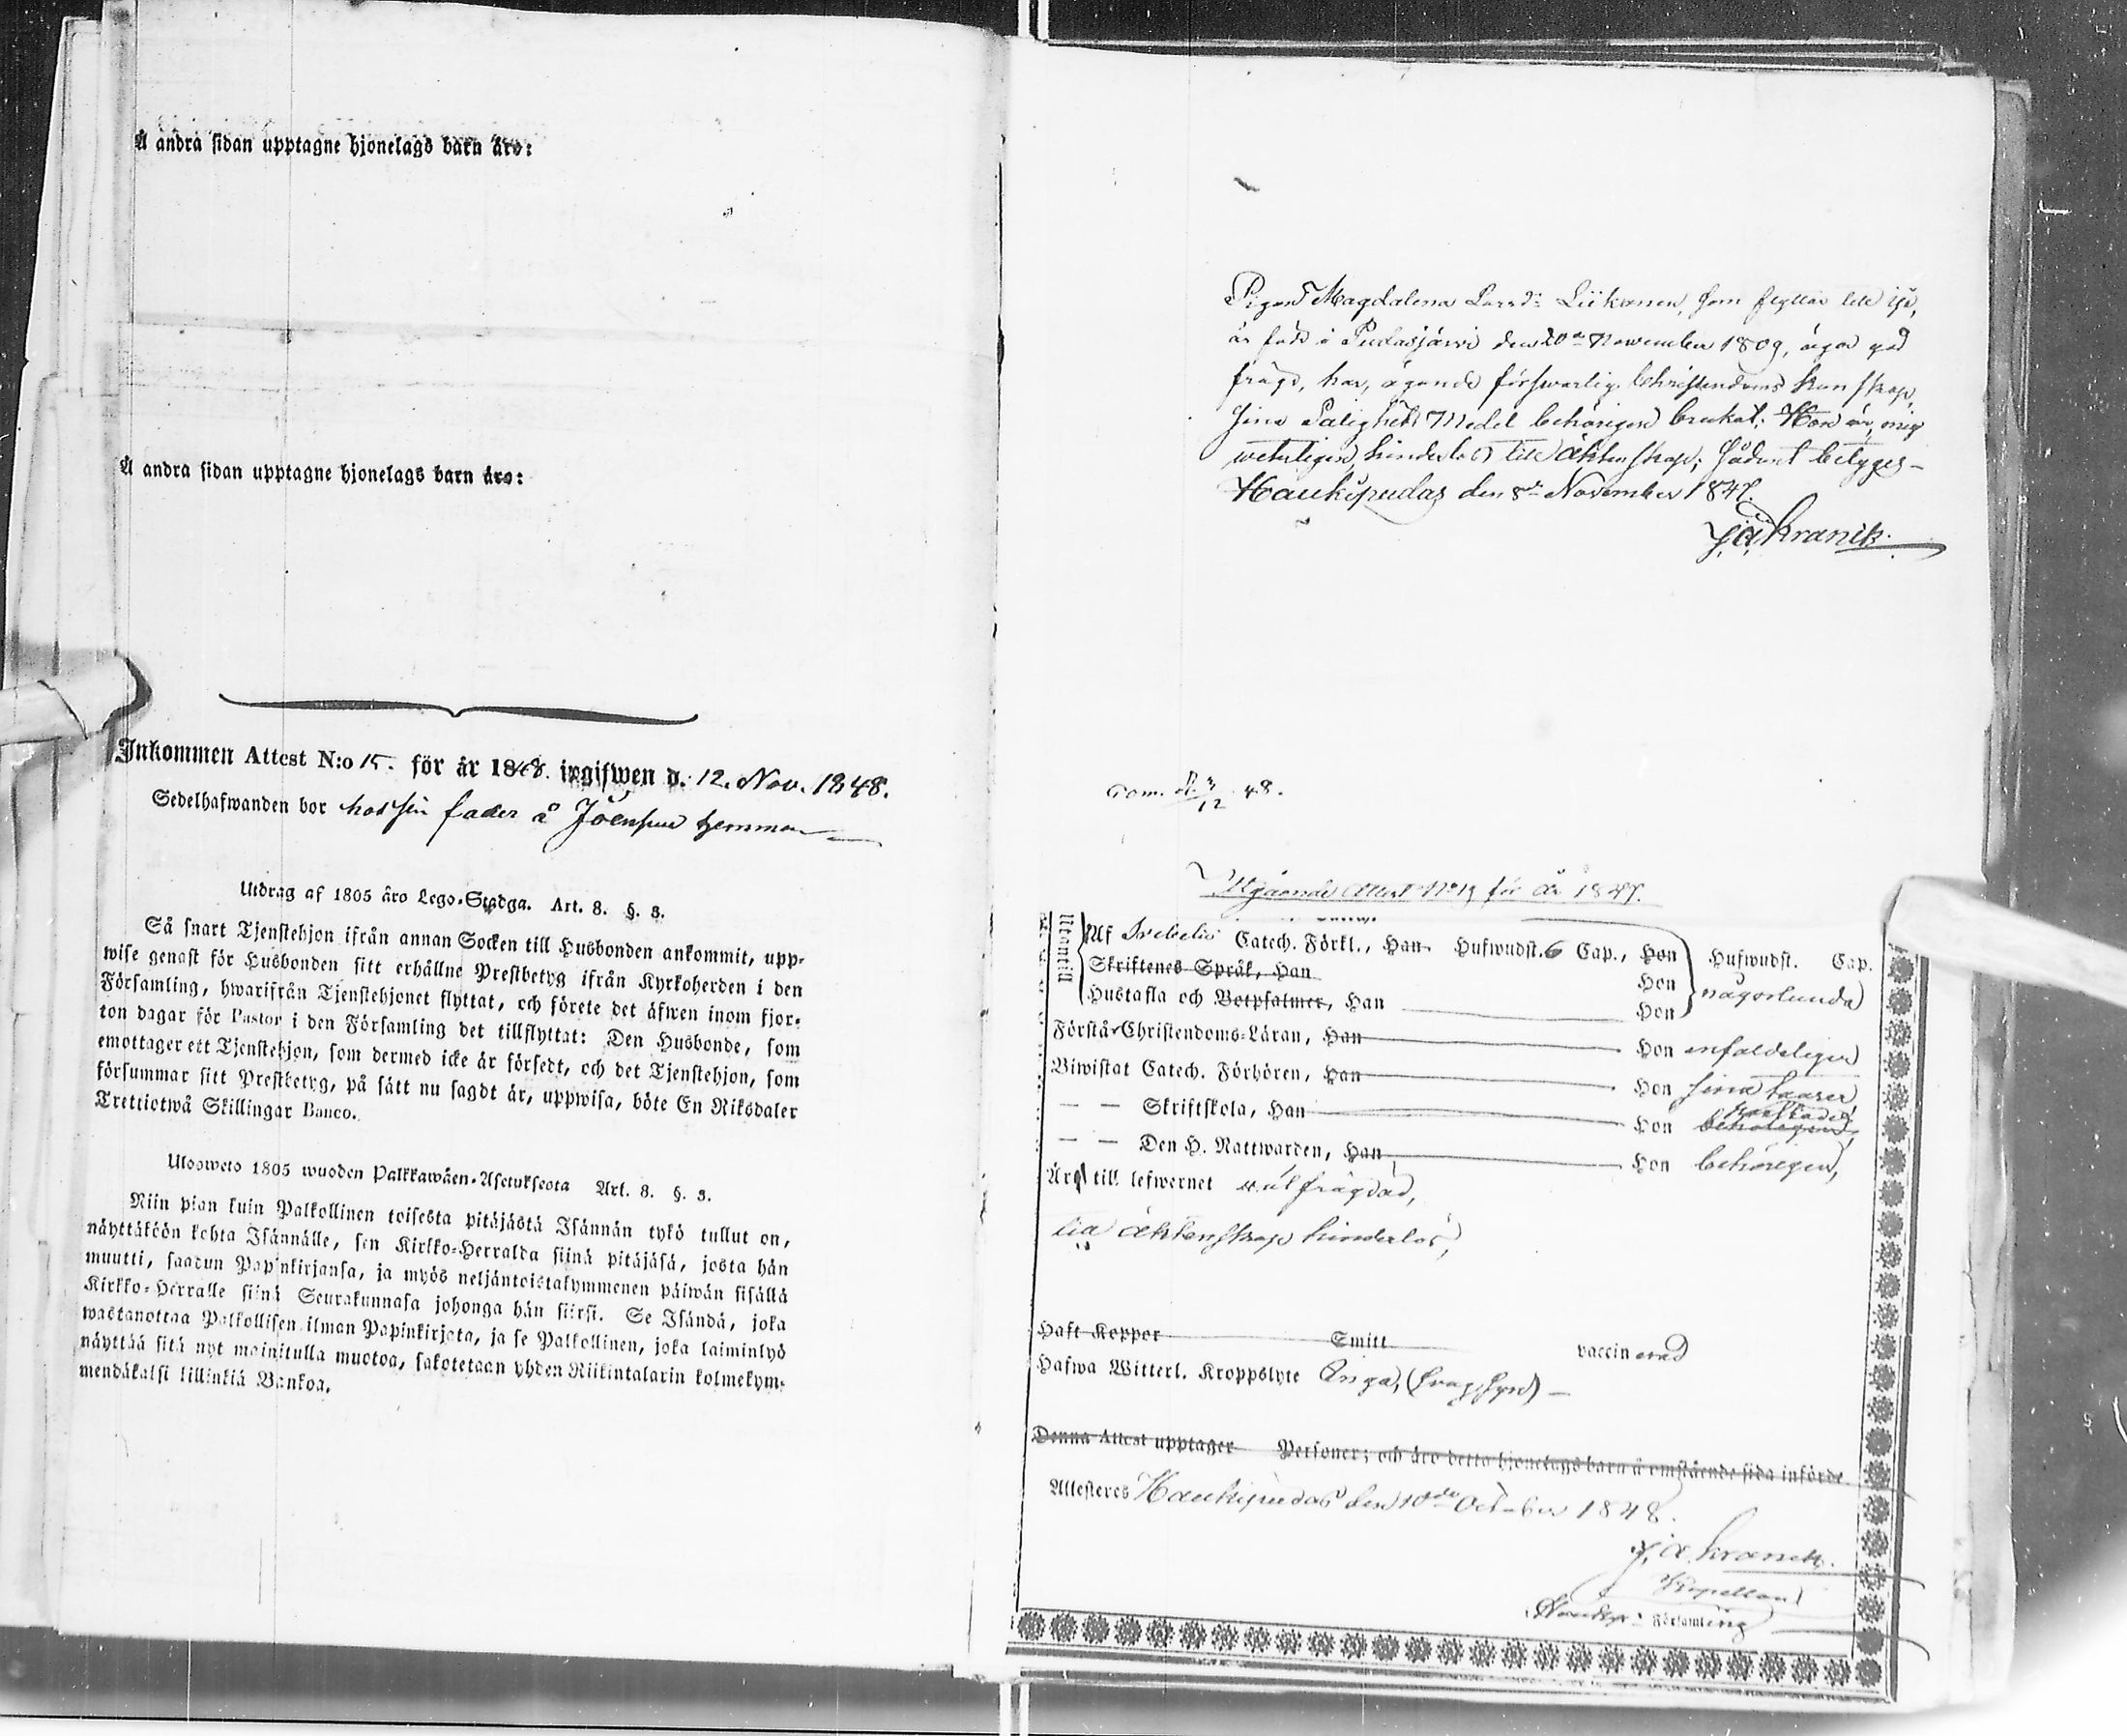 Å andra sidan upptagne hjonelags barn äro:
Å andra sidan upptagne hjonelags barn äro:
Inkommen Attest N:o 15. för år 1848. ingifwen d. 12. Nov. 1848.
Sedelhafwanden bor hos sin fader å Joensuu hemman
Utdrag af 1805 års Lego-Stadga. Art. 8. §. 3.
Så snart Tjenstehjon ifrån annan Socken till Husbonden ankommit, upp-
wise genast för Husbonden sitt erhållne Prestbetyg ifrån Kyrkoherden i den
Församling, hwarifrån Tjenstehjonet flyttat, och förete det äfwen inom fjor-
ton dagar för Pastor i den Församling det tillflyttat: Den Husbonde, som
emottager ett Tjenstehjon, som dermed icke är försedt, och det Tjenstehjon, som
försummar sitt Prestbetyg, på sätt nu sagdt är, uppwisa, böte En Riksdaler
Trettiotwå Skillingar Banco.
Ulosweto 1805 wuoden Palkkawäen-Asetuksesta Art. 8. §. 3.
Niin pian kuin Palkollinen toisesta pitäjästä Isännän tykö tullut on,
näyttäköön kohta Isännälle, sen Kirkko-Herralda siinä pitäjäsä, josta hän
muutti, saadun Papinkirjansa, ja myös neljäntoistakymmenen päiwän sisällä
Kirkko-Herralle siinä Seurakunnasa johonga hän siirsi. Se Isändä, joka
wastanottaa Palkollisen ilman Papinkirjata, ja se Palkollinen, joka laiminlyö
näyttää sitä nyt mainitulla muotoa, sakotetaan yhden Riikintalarin kolmekym-
mendäkaksi killinkiä Bankoa.
Pigan Magdalena Larsd: Liikanen, som flyttar till Ijo,
är född i Pudasjärwi den 20de November 1809, äger god
frägd, har, ägande förswarlig Christendoms kunskap,
sina Salighets Medel behörigen brukat; Hon är, mig
weterligen, hinderlös till äktenskap; Sådant betyges -
Haukipudas den 8de November 1847.
J. A. Kranck.
48.
Utgående Attest No 19 för år 1847.
Utantill
Af Svebelii Catech. Förkl., Han Hufwudst. 6 Cap., Hon Hufwudst. Cap.
Skriftenes Språk, Han Hon någorlunda
Hustafla och Botpsalmer, Han Hon
Förstår Christendoms-Läran, Han Hon enfaldeligen
Biwistat Catech. Förhören, Han Hon sina
— — Skriftskola, Han Hon behörigen,
— — Den H. Nattwarden, Han Hon behörigen,
Är till lefwernet wälfrägdad,
till äktenskap hinderlös,
Haft Koppor Smitt vaccinerad
Hafwa Witterl. Kroppslyte Inga,
Denna Attest upptager Personer; och äro detta hjonelags barn å omstående sida införde.
Attesteras Haukipudas den 10de October 1848.
J. A. Kranck.
Kapellan
Haukip: Församling